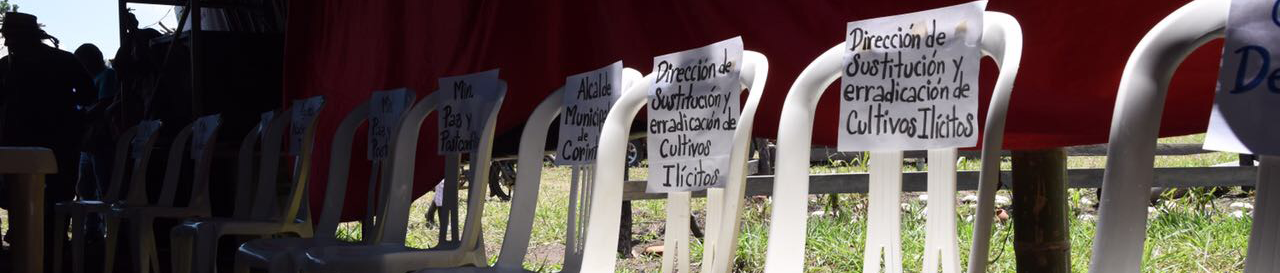 Min
Paz y
Alcalde
Municipal
de
Dirección de
Sustitución y
erradicación de
Cultivos Ilícitos
Dirección de
Sustitución y
erradicación de
Cultivos Ilícitos
De